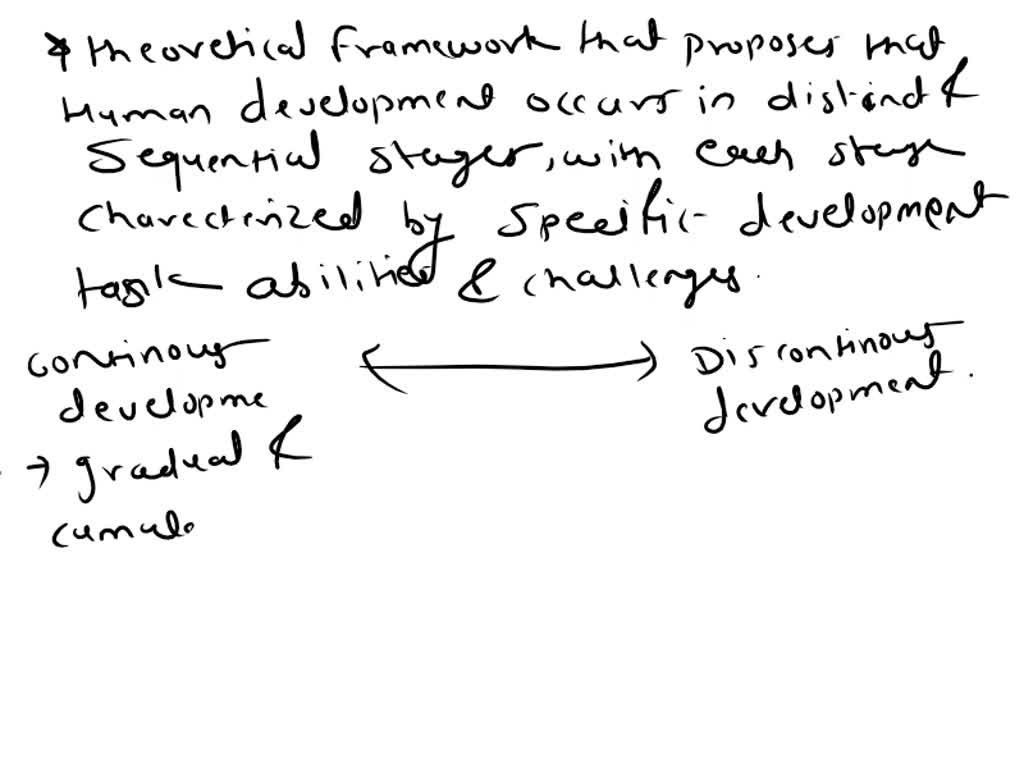 * Theoretical framework that proposes that
Human development occurs in distinct &
Sequential stages, with each stage
charecterized by specific development
task abilities & challenges.
continous ⟷ Discontinous
developme development.
→ gradual &
cumula